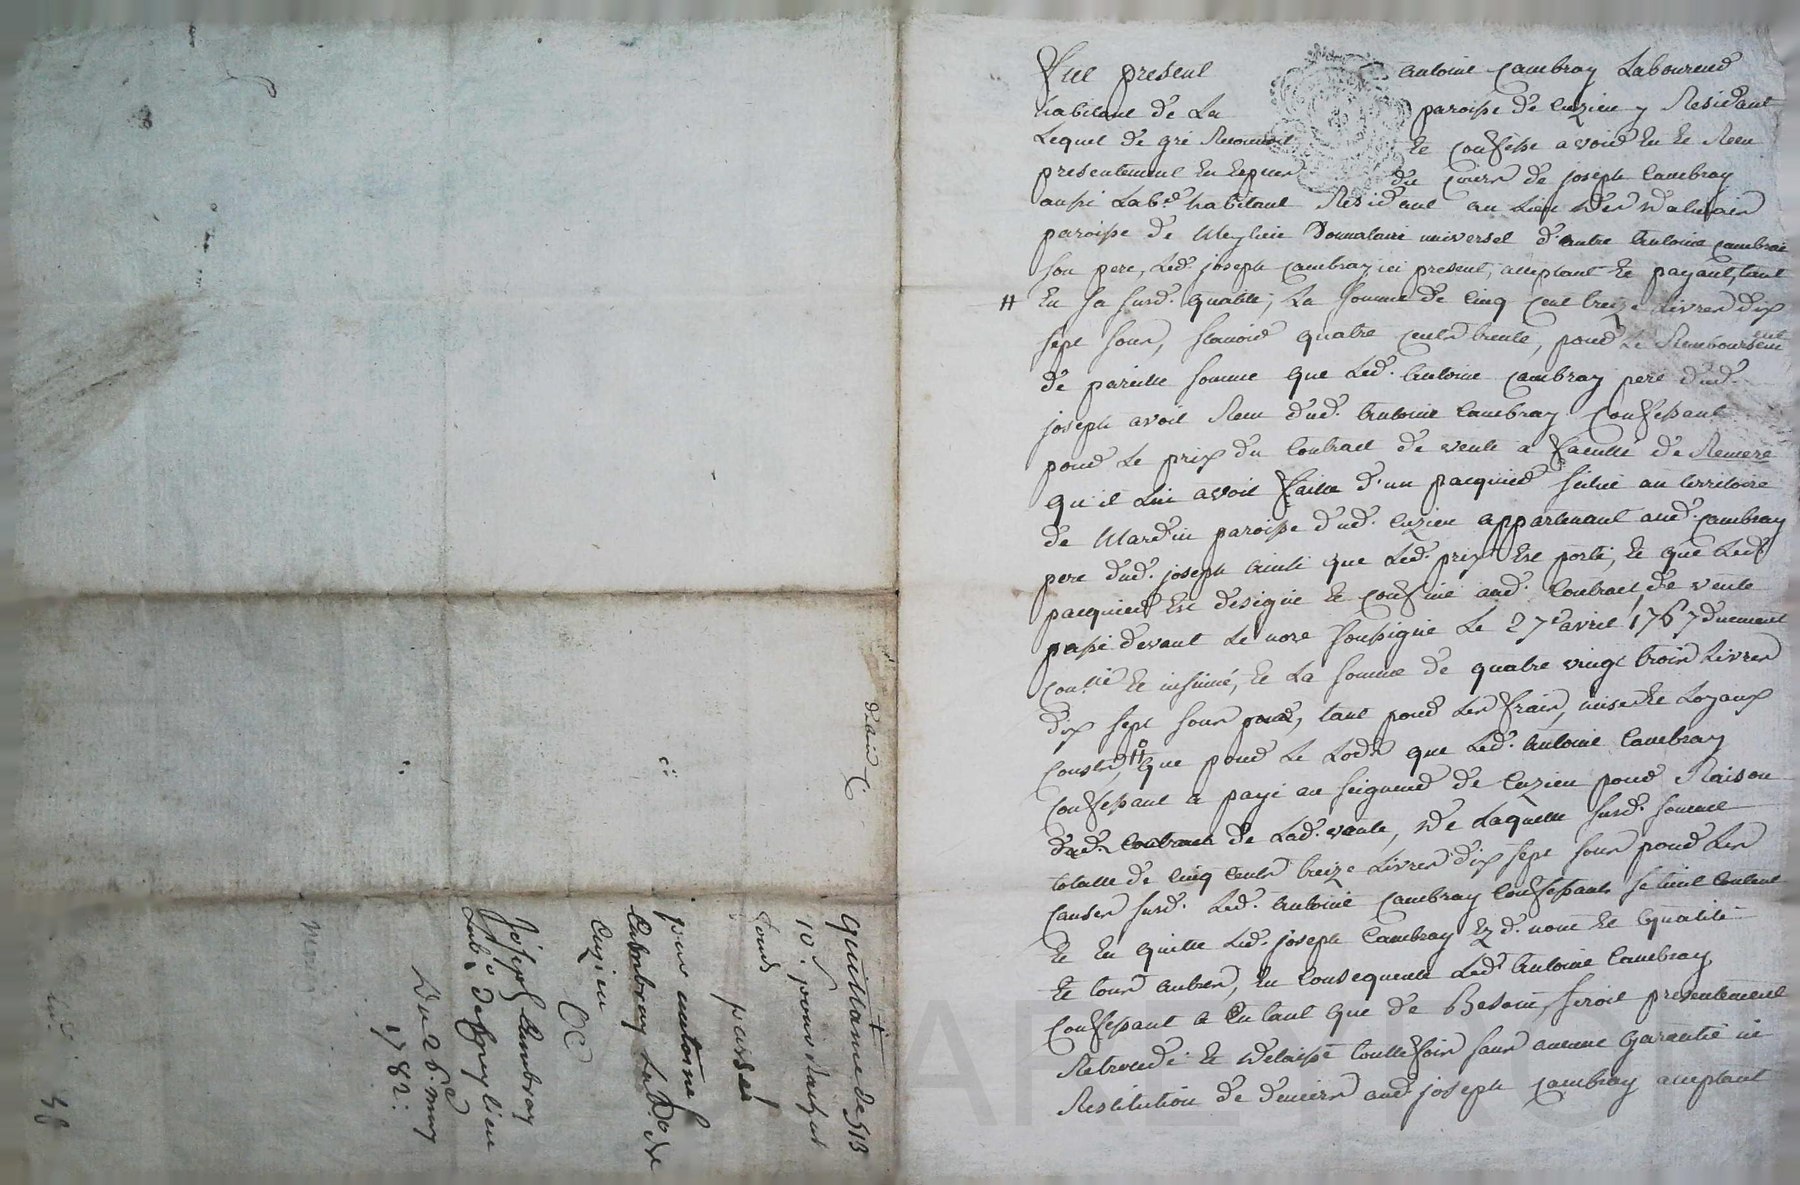 Fut present Antoine Cambray Laboureur
habitant de La paroisse de Cuzieu y Residant
Lequel de gré Reconnoit Et confesse avoir Eu Et Reçu
presentement En Especes du cours de joseph Cambray
aussi Lab.r habitant Residant au Lieu des
paroisse de Meylieu Donnataire universel d'autre Antoine Cambray
son pere, Led. joseph Cambray ici present, acceptant Et payant, tant
# En sa susd. qualité, La somme de Cinq Cent treize Livres dix
sept sous, scavoir quatre cents trente, pour Le Remboursement
de pareille somme que Led. Antoine Cambray pere dud.
joseph avoit Reçu dud. Antoine Cambray Confessant
pour Le prix du Contract de vente a faculté de Remeré
qu'il Lui avoit faitte d'un pacquier situé au territoire
de paroisse dud. Cuzieu appartenant aud. Cambray
pere dud. joseph Ainsi que Led. prix Est porté, Et que Led.
pacquier Est designé Et confiné aud. Contract de vente
passé devant Le nore soussigné Le 27e avril 1767 duement
con.llé Et insinué, Et La somme de quatre vingt trois Livres
dix sept sous pour, tant pour Les frais, mises Et Loyaux
Cousts, # que pour Le Lods que Led. Antoine Cambray
Confessant a payé au seigneur de Cuzieu pour Raison
dud. Contract de Lad. vente, De Laquelle susd. somme
totalle de Cinq Cents treize Livres dix sept sous pour Les
causes susd. Led. Antoine Cambray Confessant se tient Content
Et En quitte Led. joseph Cambray Ezd. nom Et qualité
Et tous autres, En Consequence Led. Antoine Cambray
Confessant a En tant que de Besoin seroit presentement
Retrocedé Et Delaissé touttefois sans aucune Garantie ni
Restitution de deniers aud. joseph Cambray acceptant
quittance de 513
10 s. pour
tous
passé
par antoine
Cambray Lab.r de
Cuzieu
a
joseph Cambray
Lab.r de meylieu
Du 26.e may
1782.